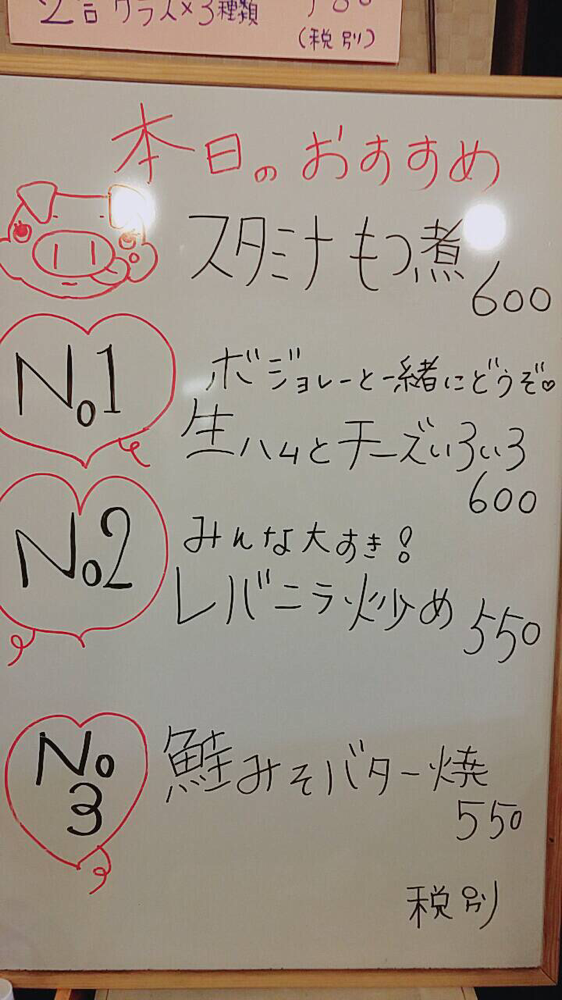 2合グラス×3種類
(税別)
本日のおすすめ
スタミナもつ煮
600
No1
ボジョレーと一緒にどうぞ♡
生ハムとチーズいろいろ
600
No2
みんな大すき!
レバニラ炒め 550
No
3
鮭みそバター焼
550
税別